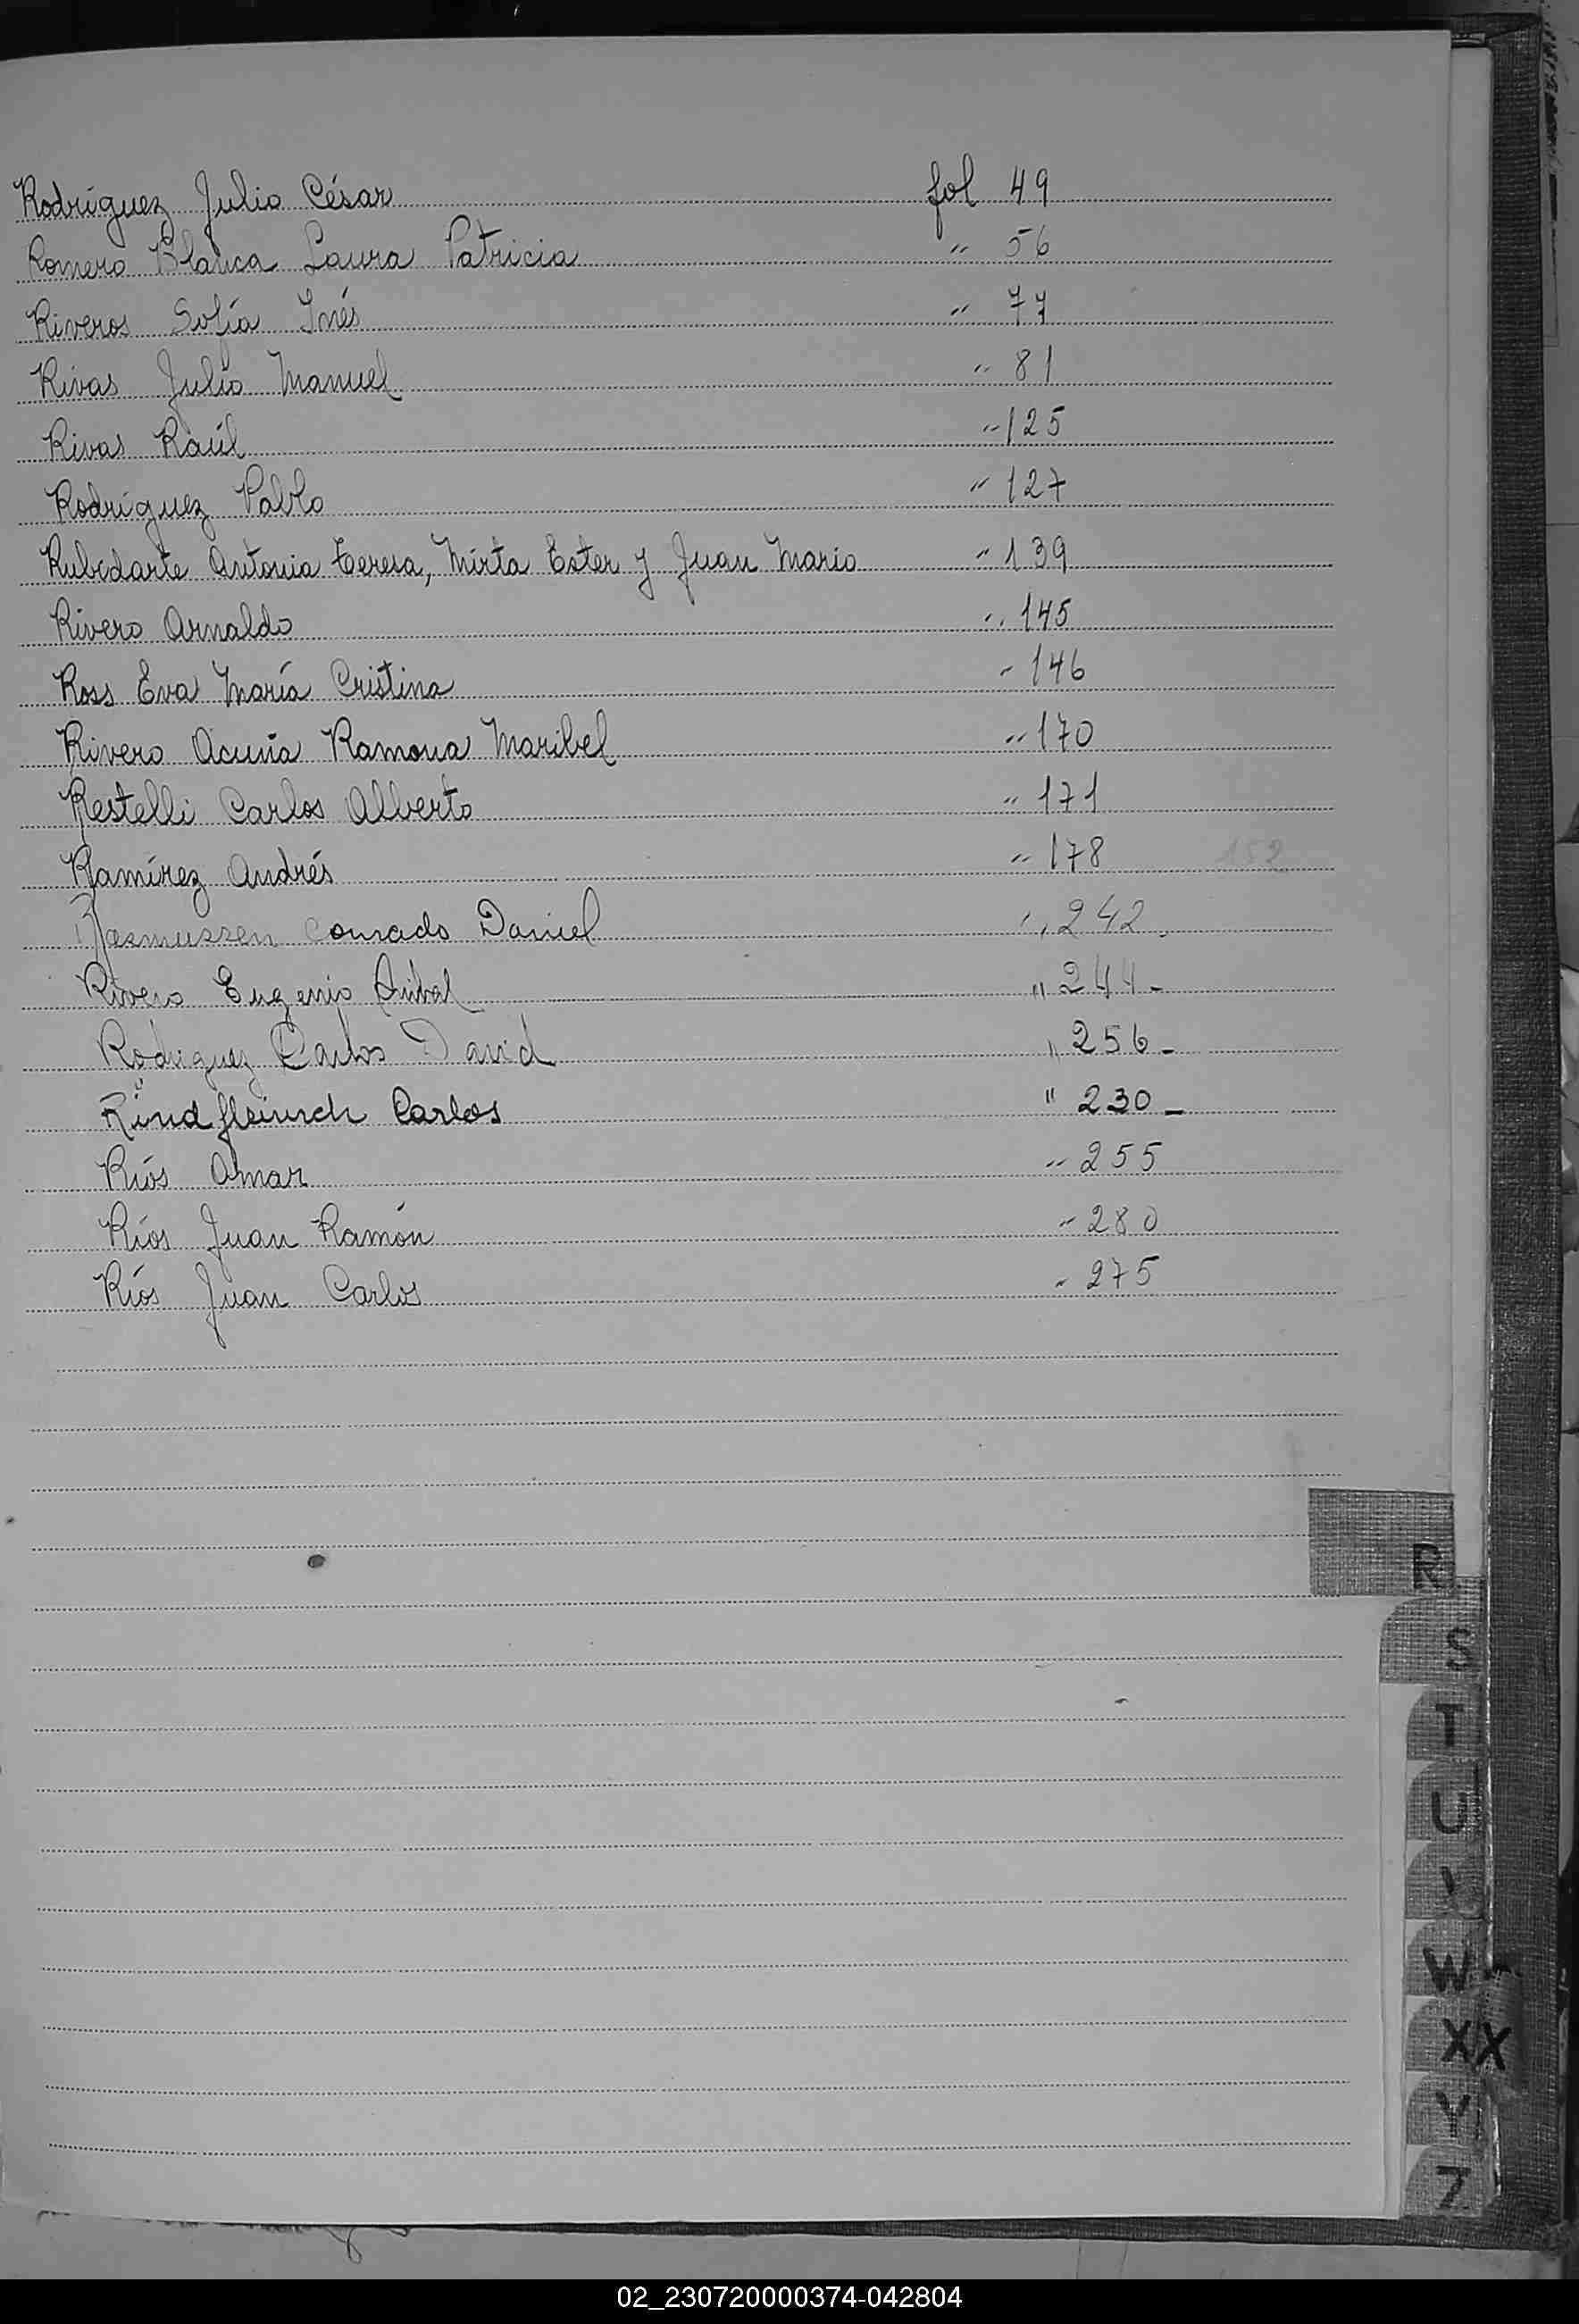 Rodríguez Julio César fol 49
Romero Blanca Laura Patricia " 56
Riveros Sofía Inés " 77
Rivas Julio Manuel " 81
Rivas Raúl " 125
Rodríguez Pablo " 127
Rubidarte Antonia Teresa, Mirta Ester y Juan Mario " 139
Rivero Arnaldo " 145
Ross Eva María Cristina " 146
Rivero Acuña Ramona Maribel " 170
Restelli Carlos Alberto " 171
Ramírez Andrés " 178 152
Rasmussen Conrado Daniel " 242.
Rivero Eugenio Anibal " 244-
Rodriguez Carlos David " 256-
Carlos " 230-
Ríos Omar " 255
Ríos Juan Ramón " 280
Ríos Juan Carlos " 275
R
S
T
U
W
XX
Y
Z
02_230720000374-042804